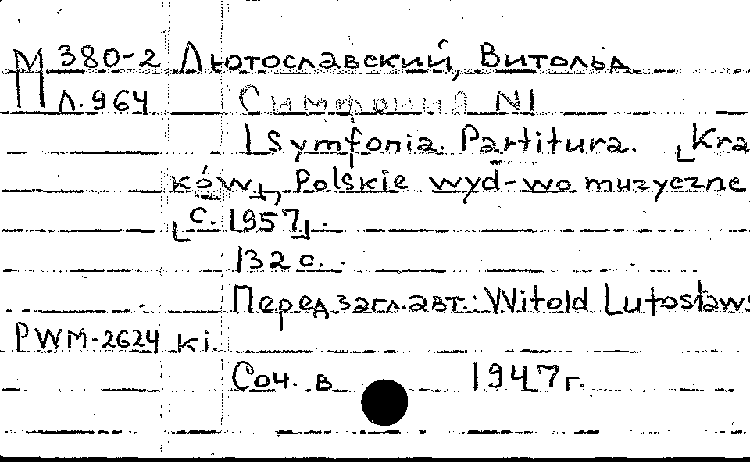 М 380-2 Льютославский, Витольд
Л.964 Симфония N1
I Symfonia. Partitura. [Kra
ków], Polskie wyd-wo muzyczne
[c. 1957].
132 с.
Перед загл. авт.: Witold Lutosławs
PWM-2624 ki.
Соч. в 1947г.